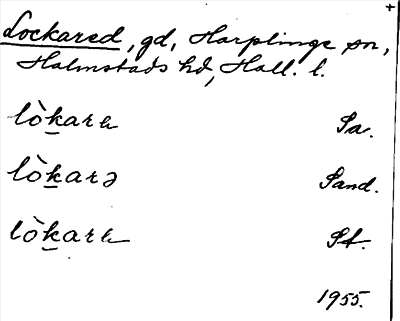 Lockared, gd, Harplinge sn,
Halmstads hd, Hall. l.
lòḵarɐ Sa.
lòḵarə Sand.
lòḵarɐ St.
1955.